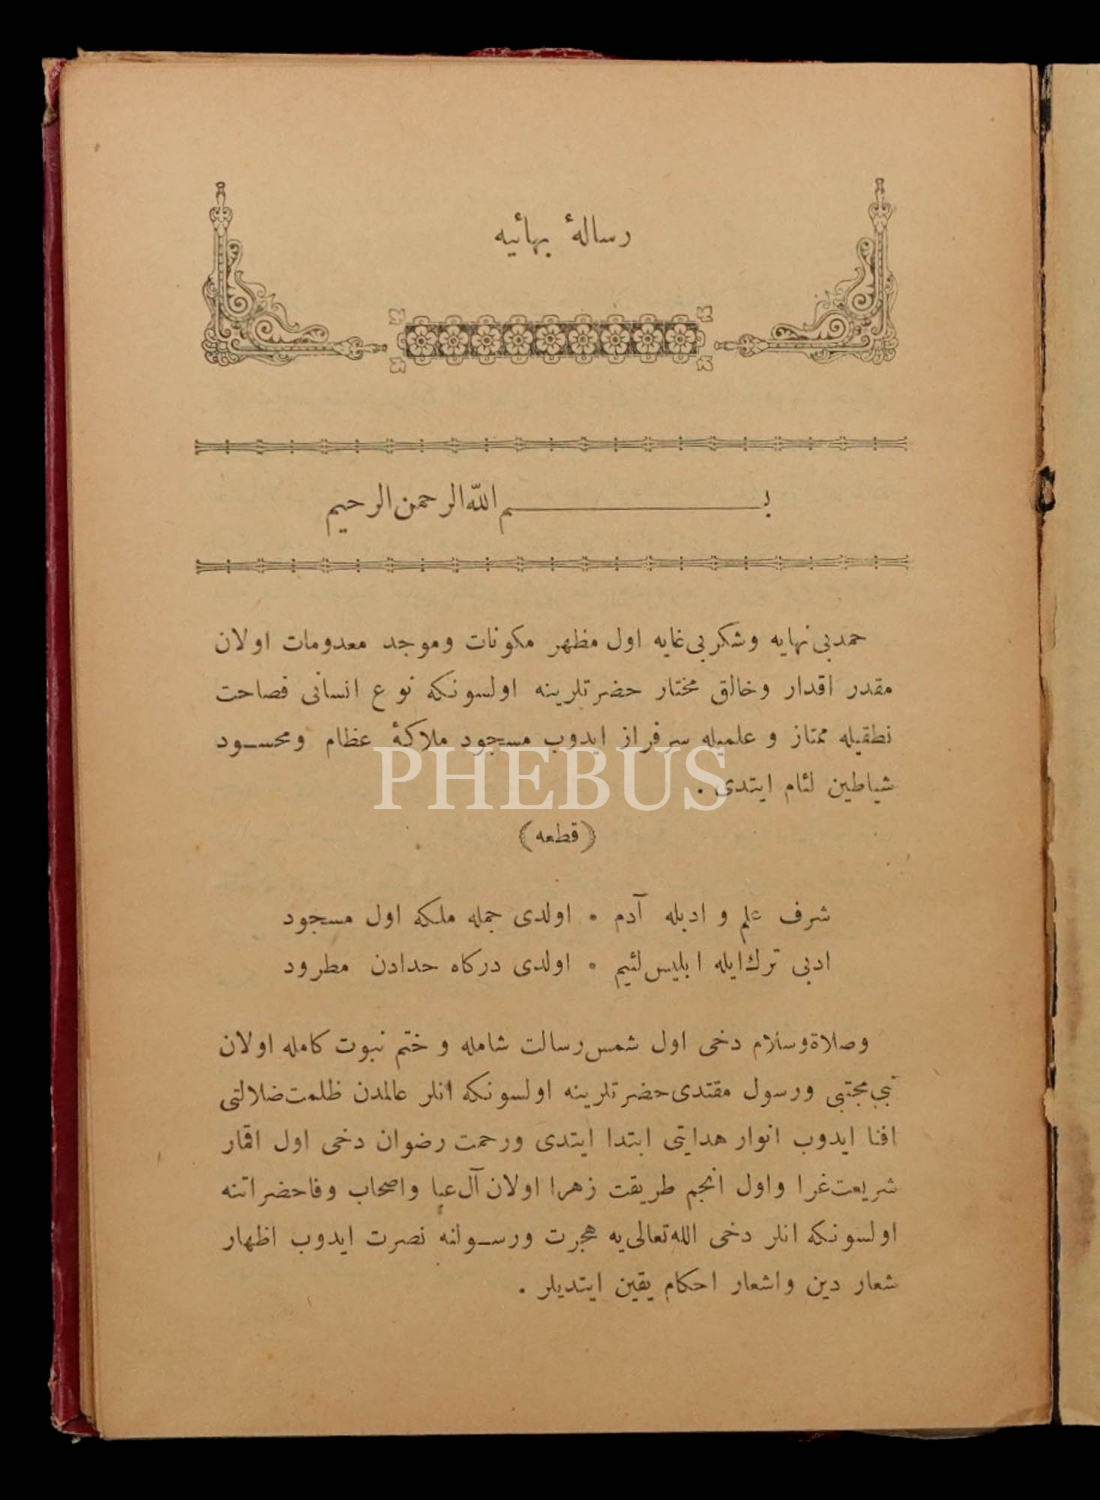 رسالهٔ بهائیه
بسم الله الرحمن الرحیم
حمدبی نهایه وشکربی غایه اول مظهر مکونات وموجد معدومات اولان
مقدر اقدار وخالق مختار حضرتلرینه اولسونکه نوع انسانی فصاحت
نطقیله ممتاز و علمیله سرفراز ایدوب مسجود ملائکهٔ عظام ومحسود
شیاطین لئام ایتدی .
PHEBUS
(قطعه)
شرف علم و ادبله آدم * اولدی جمله ملکه اول مسجود
ادبی ترك ایله ابلیس لئیم * اولدی درکاه حدادن مطرود
وصلاة وسلام دخی اول شمس رسالت شامله و ختم نبوت کامله اولان
نبی مجتبی ورسول مقتدی حضرتلرینه اولسونکه انلر عالمدن ظلمت ضلالتی
افنا ایدوب انوار هدایتی ابتدا ایتدی ورحمت رضوان دخی اول اقمار
شریعت غرا واول انجم طریقت زهرا اولان آل عبا واصحاب وفاحضراتنه
اولسونکه انلر دخی الله تعالی یه هجرت ورسولنه نصرت ایدوب اظهار
شعار دین واشعار احکام یقین ایتدیلر .